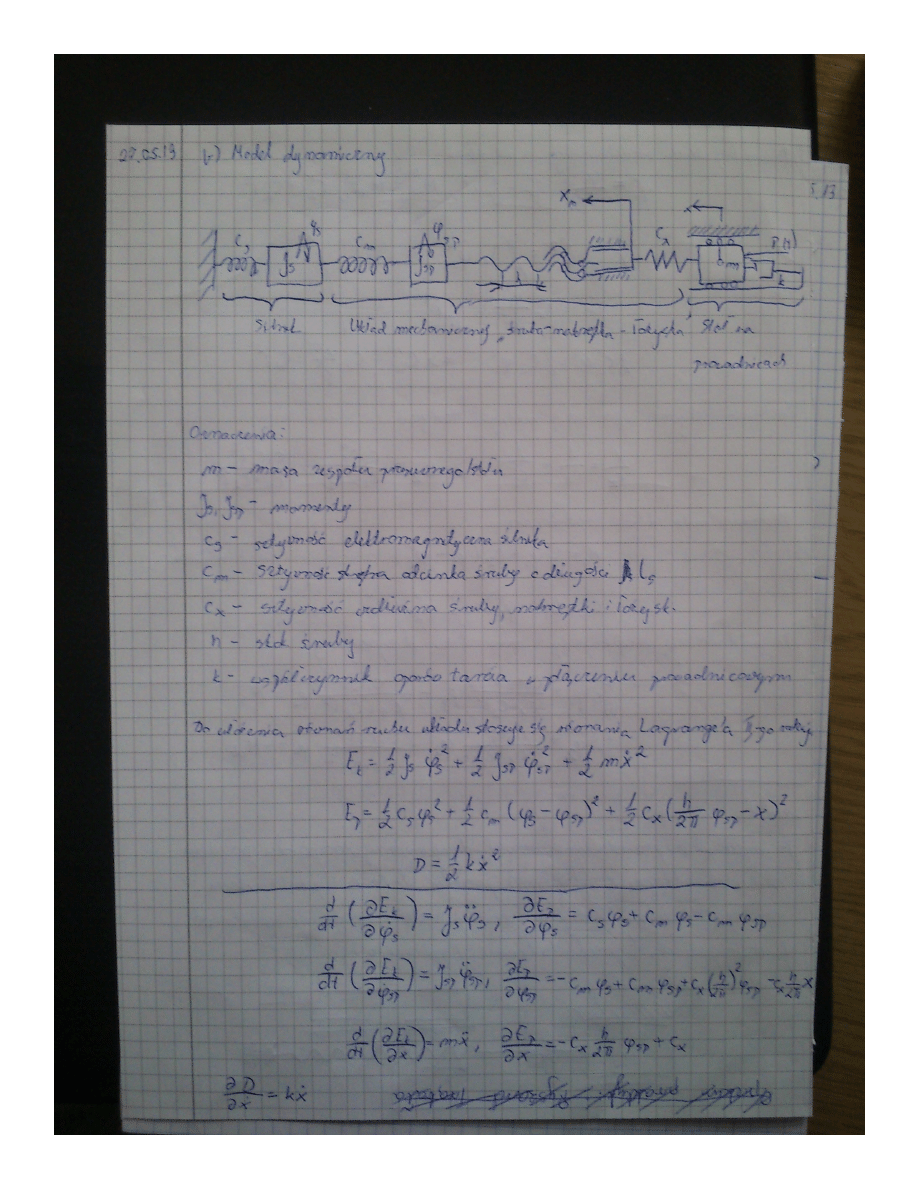 27.05.13 b) Model dynamiczny
5.13
Xm x
Cs φs Cm φśr Cx F(t)
Js Jśr h m k
Silnik Układ mechaniczny „śruba-nakrętka-łożyska” Stół na
prowadnicach
Oznaczenia:
m - masa zespołu przesuwnego/stołu
Js, Jśr - momenty
cs - sztywność elektromagnetyczna silnika
cm - sztywność skrętna odcinka śruby o długości ls
cx - sztywność śruby, nakrętki i łożysk.
h - skok śruby
k - współczynnik oporów tarcia w połączeniu prowadnicowym
Do ułożenia równań ruchu układu stosuje się równania Lagrange'a II-go rodzaju
Ek = 1/2 Js φ̇s² + 1/2 Jśr φ̇śr² + 1/2 mẋ²
Ep = 1/2 cs φs² + 1/2 cm (φs - φśr)² + 1/2 cx (h/2π φśr - x)²
D = 1/2 kẋ²
d/dt (∂Ek/∂φ̇s) = Js φ̈s, ∂Ep/∂φs = cs φs + cm φs - cm φśr
d/dt (∂Ek/∂φ̇śr) = Jśr φ̈śr, ∂Ep/∂φśr = -cm φs + cm φśr + cx (h/2π)² φśr - cx h/2π x
d/dt (∂Ek/∂ẋ) = mẍ, ∂Ep/∂x = -cx h/2π φśr + cx
∂D/∂ẋ = kẋ